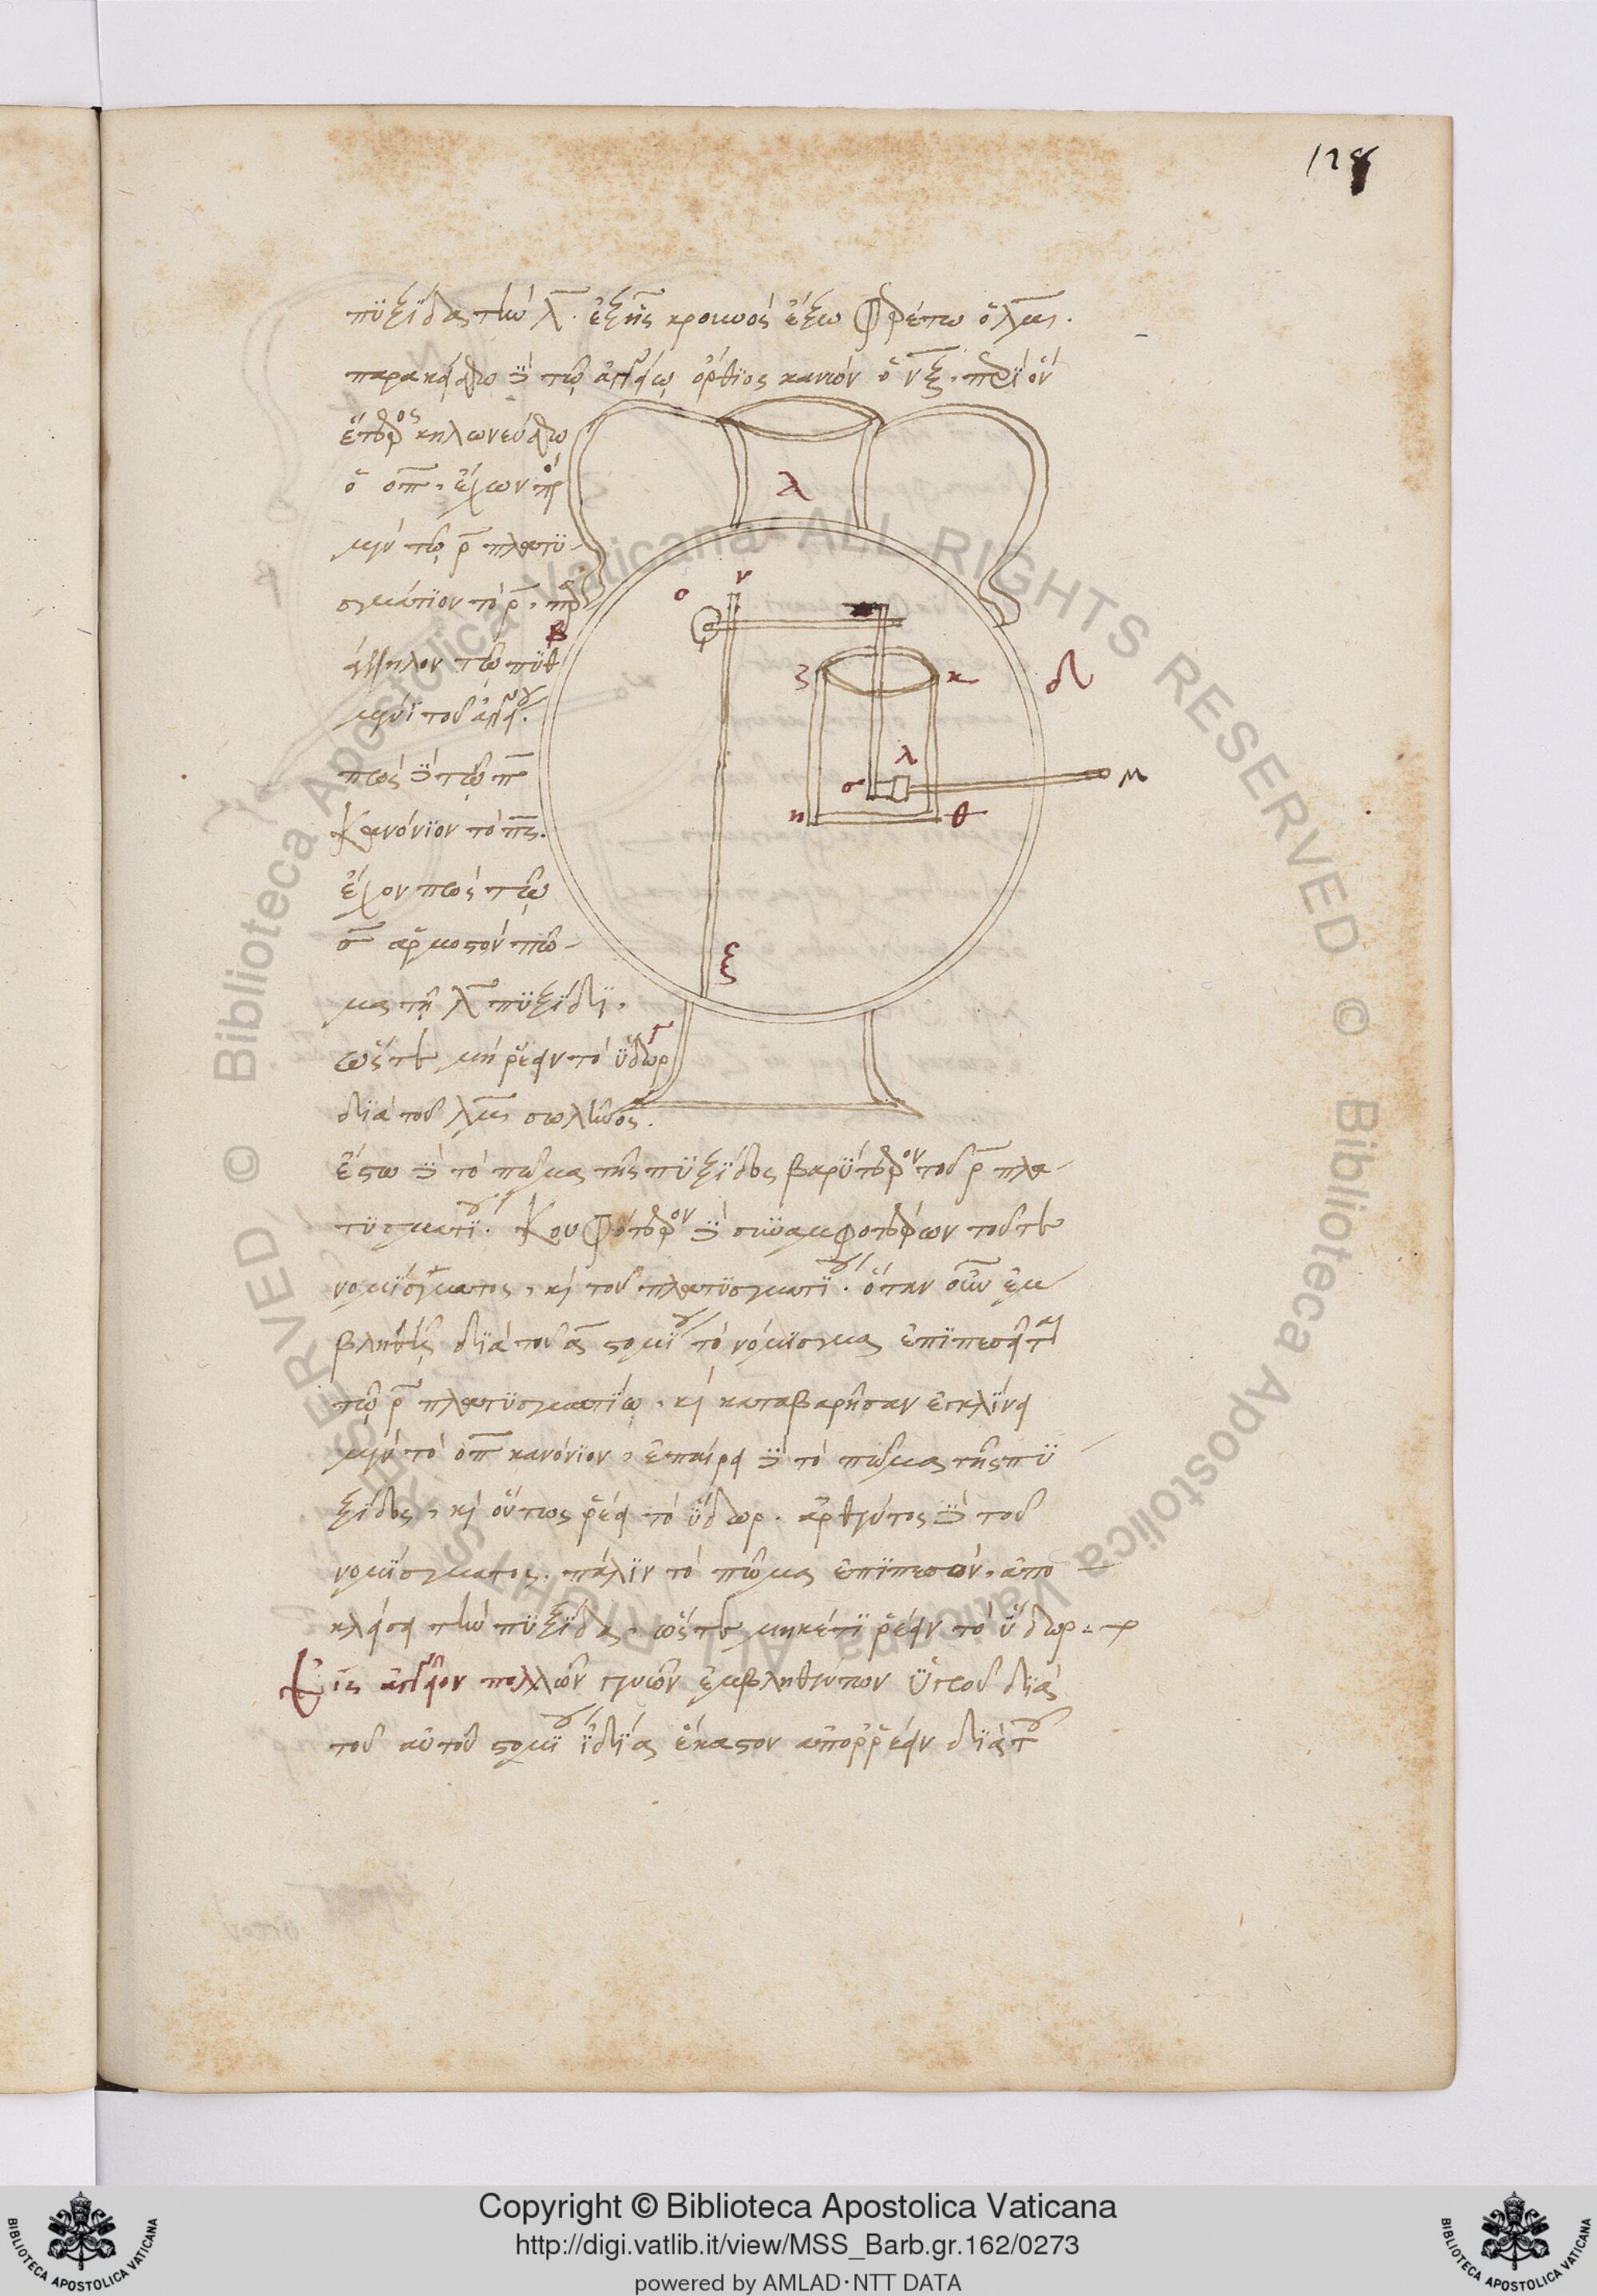 128
πϋξίδα τὴν λ. ἐξ ἧς κρουνὸς ἔξω φερέτω ὁ λμ.
παρακείσθω δὲ τῷ ἀγγείῳ ὄρθιος κανὼν ὁ νξ. περὶ ὃν
ἕτερος κηλωνευέσθω
ὁ οπ. ἔχων πρὸς
μὲν τῷ ρ πλατυ-
σμάτιον τὸ ρ. παρ
άλληλον τῷ πυθ
μένι τοῦ ἀγγείου.
πρὸς δὲ τῷ π
κανόνιον τὸ πς.
ἔχον πρὸς τῷ
σ ἁρμοστὸν πῶ-
μα τῇ λ πυξίδι.
ὥστε μὴ ῥέειν τὸ ὕδωρ
διὰ τοῦ λμ σωλῆνος.
ἔστω δὲ τὸ πῶμα τῆς πυξίδος βαρύτερον τοῦ ρ πλα-
τυσματίου. κουφότερον δὲ συναμφοτέρων τοῦ τε
νομίσματος, καὶ τοῦ πλατυσματίου. ὅταν οὖν ἐμ
βληθῇ διὰ τοῦ α στομίου τὸ νόμισμα ἐπιπεσεῖται
τῷ ρ πλατυσματίῳ. καὶ καταβαρῆσαν ἐγκλίνει
μὲν τὸ οπ κανόνιον, ἐπαίρει δὲ τὸ πῶμα τῆς πυ
ξίδος, καὶ οὕτως ῥέει τὸ ὕδωρ. ἀρθέντος δὲ τοῦ
νομίσματος. πάλιν τὸ πῶμα ἐπιπεσὸν, ἀπο
κλείσει τὴν πυξίδα, ὥστε μηκέτι ῥέειν τὸ ὕδωρ
Εἰς ἀγγεῖον πολλῶν οἴνων ἐμβληθέντων ὑγρῶν διὰ
τοῦ αὐτοῦ στομίου ἰδίᾳ ἕκαστον ἀπορρέειν διὰ τοῦ
α
β
ο
ν
ζ
κ
δ
λ
σ
μ
η
θ
ξ
γ
© Biblioteca Apostolica Vaticana - ALL RIGHTS RESERVED © Biblioteca Apostolica Vaticana ALL RIGHTS RESERVED
BIBLIOTECA APOSTOLICA VATICANA
Copyright © Biblioteca Apostolica Vaticana
http://digi.vatlib.it/view/MSS_Barb.gr.162/0273
powered by AMLAD·NTT DATA
BIBLIOTECA APOSTOLICA VATICANA